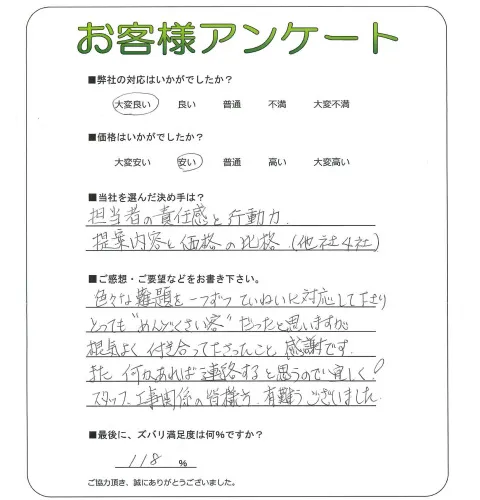 お客様アンケート
■弊社の対応はいかがでしたか?
大変良い 良い 普通 不満 大変不満
■価格はいかがでしたか?
大変安い 安い 普通 高い 大変高い
■当社を選んだ決め手は?
担当者の責任感と行動力.
提案内容と価格の比格(他社4社)
■ご感想・ご要望などをお書き下さい。
色々な難題を一つずつていねいに対応して下さり
とっても"めんどくさい客"だったと思いますが
根気よく付き合って下さったこと 感謝です.
また 何かあれば連絡すると思うので宜しく!
スタッフ、工事関係の皆様方、有難うございました.
■最後に、ズバリ満足度は何%ですか?
118 %
ご協力頂き、誠にありがとうございました。